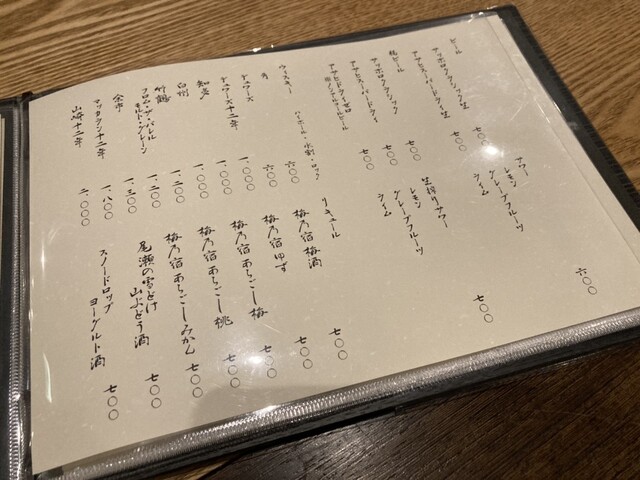 ビール
サッポロクラシック生 七〇〇
アサヒスーパードライ生 七〇〇
瓶ビール
サッポロクラシック 七〇〇
アサヒスーパードライ 七〇〇
アサヒドライゼロ
※ノンアルコールビール 七〇〇
ウィスキー
ハイボール・水割・ロック
角 六〇〇
デュワーズ 六〇〇
デュワーズ十二年 一、〇〇〇
知多 一、〇〇〇
白州 一、二〇〇
竹鶴 一、二〇〇
フロム・ザ・バレル
モルト・グレーン 一、三〇〇
余市 一、八〇〇
マッカラン十二年 二、〇〇〇
山崎十二年 二、〇〇〇
サワー 六〇〇
レモン
グレープフルーツ
ライム
生搾りサワー 七〇〇
レモン
グレープフルーツ
ライム
リキュール
梅乃宿梅酒 七〇〇
梅乃宿ゆず 七〇〇
梅乃宿あらごし梅 七〇〇
梅乃宿あらごし桃 七〇〇
梅乃宿あらごしみかん 七〇〇
尾瀬の雪どけ
山ぶどう酒 七〇〇
スノードロップ
ヨーグルト酒 七〇〇